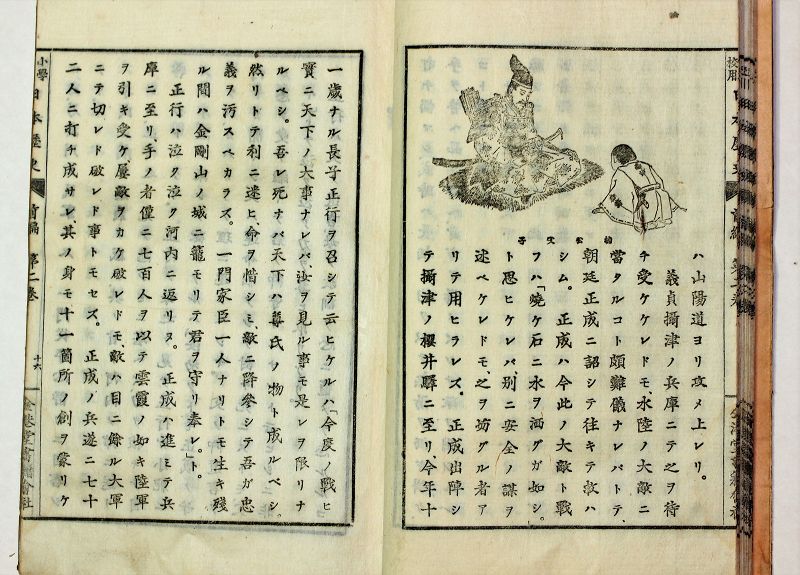 ハ山陽道ヨリ攻メ上レリ。
義貞攝津ノ兵庫ニテ之ヲ待
チ受ケケレドモ、水陸ノ大敵ニ
當タルコト頗難儀ナレバトテ、
朝廷正成ニ詔シテ往キテ救ハ
シム。正成ハ今此ノ大敵ト戰
フハ「燒ケ石ニ水ヲ洒グガ如シ。
ト思ヒケレバ、別ニ安全ノ謀ヲ
述ベケレドモ、之ヲ妨グル者ア
リテ用ヒラレズ。正成出陣シ
テ攝津ノ櫻井驛ニ至リ今年十
一歳ナル長子正行ヲ召シテ云ヒケルハ「今度ノ戰ヒ
實ニ天下ノ大事ナレバ、汝ヲ見ル事モ是レヲ限リナ
ルベシ。吾レ死ナバ天下ハ尊氏ノ物ト成ルベシ。
然リトテ利ニ迷ヒ、命ヲ惜シミ、敵ニ降參シテ吾ガ忠
義ヲ汚スベカラズ。一門家臣一人ナリトモ生キ殘
ル間ハ金剛山ノ城ニ籠モリテ君ヲ守リ奉レ。」ト。
正行ハ泣ク泣ク河内ニ返リヌ。正成ハ進ミテ兵
庫ニ至リ、手ノ者僅ニ七百人ヲ以テ雲霞ノ如キ陸軍
ヲ引キ受ケ、屢敵ヲカケ破レドモ、敵ハ目ニ餘ル大軍
ニテ切レド破レド事トモセズ。正成ノ兵遂ニ七十
二人ニ打チ成サレ其ノ身モ十一箇所ノ創ヲ蒙リケ
小學日本歴史 前編 第二卷
十六
金港堂書籍會社